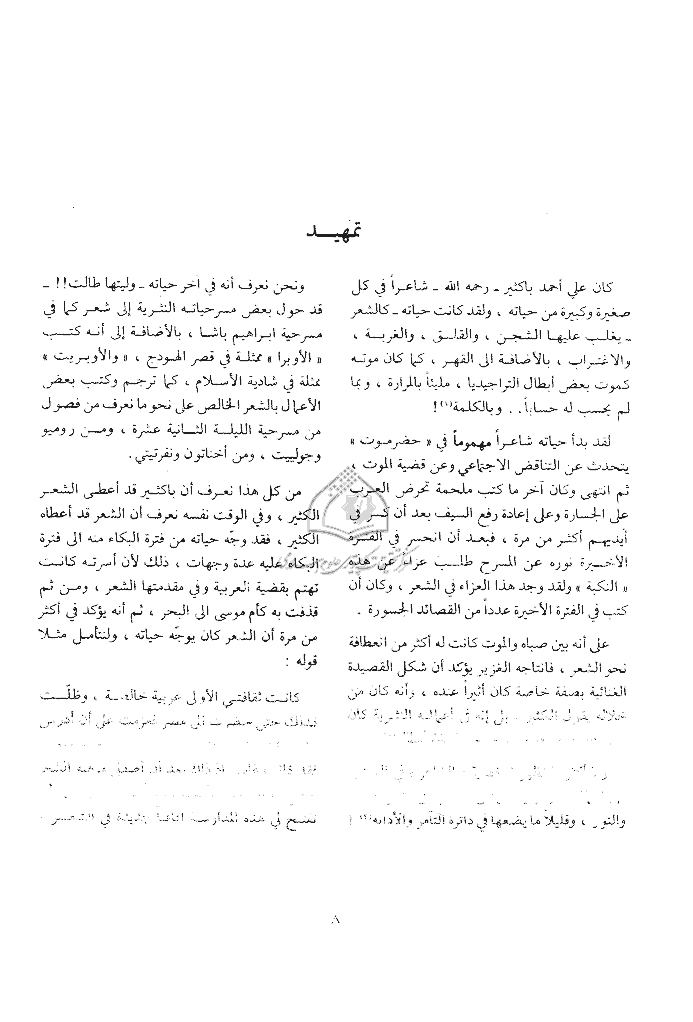 تمهيــد
كان علي أحمد باكثير ـ رحمه الله ـ شاعراً في كل
صغيرة وكبيرة من حياته ، ولقد كانت حياته ـ كالشعر
ـ يغلب عليها الشجن ، والقلق ، والغربة ،
والاغتراب ، بالأضافة إلى القهر ، كما كان موته
كموت بعض أبطال التراجيديا ، مليئاً بالمرارة ، وبما
لم يحسب له حساباً . . وبالكلمة(١) !
لقد بدأ حياته شاعراً مهموماً في « حضرموت »
يتحدث عن التناقض الاجتماعي وعن قضية الموت ،
ثم انتهى وكان آخر ما كتب ملحمة تحرض العرب
على الجسارة وعلى إعادة رفع السيف بعد أن كسر في
أيديهم أكثر من مرة ، فبعد أن انحسر في الفترة
الأخيرة نوره عن المسرح طلب عزاء عن هذه
« النكبة » ولقد وجد هذا العزاء في الشعر ، وكان أن
كتب في الفترة الأخيرة عدداً من القصائد الجسورة .
على أنه بين صباه والموت كانت له أكثر من انعطافة
نحو الشعر ، فانتاجه الغزير يؤكد أن شكل القصيدة
الغنائية بصفة خاصة كان أثيراً عنده ، وأنه كان من
خلاله يقول الكثير ، بل إنه في أعماله النثرية كان
والنور ، وقليلاً ما يضعها في دائرة
ونحن نعرف أنه في آخر حياته ـ وليتها طالت !! ـ
قد حول بعض مسرحياته النثرية إلى شعر كما في
مسرحية ابراهيم باشا ، بالأضافة إلى أنه كتب
« الأوبرا » ممثلة في قصر الهودج ، « والأوبريت »
ممثلة في شادية الأسلام ، كما ترجم وكتب بعض
الأعمال بالشعر الخالص على نحو ما نعرف من فصول
من مسرحية الليلة الثانية عشرة ، ومن روميو
وجولييت ، ومن أخناتون ونفرتيتي .
من كل هذا نعرف أن باكثير قد أعطى الشعر
الكثير ، وفي الوقت نفسه نعرف أن الشعر قد أعطاه
الكثير ، فقد وجّه حياته من فترة البكاء منه الى فترة
البكاء عليه عدة وجهات ، ذلك لأن أسرته كانت
تهتم بقضية العربية وفي مقدمتها الشعر ، ومن ثم
قذفت به كأم موسى الى البحر ، ثم أنه يؤكد في أكثر
من مرة أن الشعر كان يوجّه حياته ، ولنتأمل مثلا
قوله :
كانت ثقافتي الأولى عربية خالصة ، وظلّت
كذلك حتى حضرت الى مصر فعزمت على أن أدرس
٨